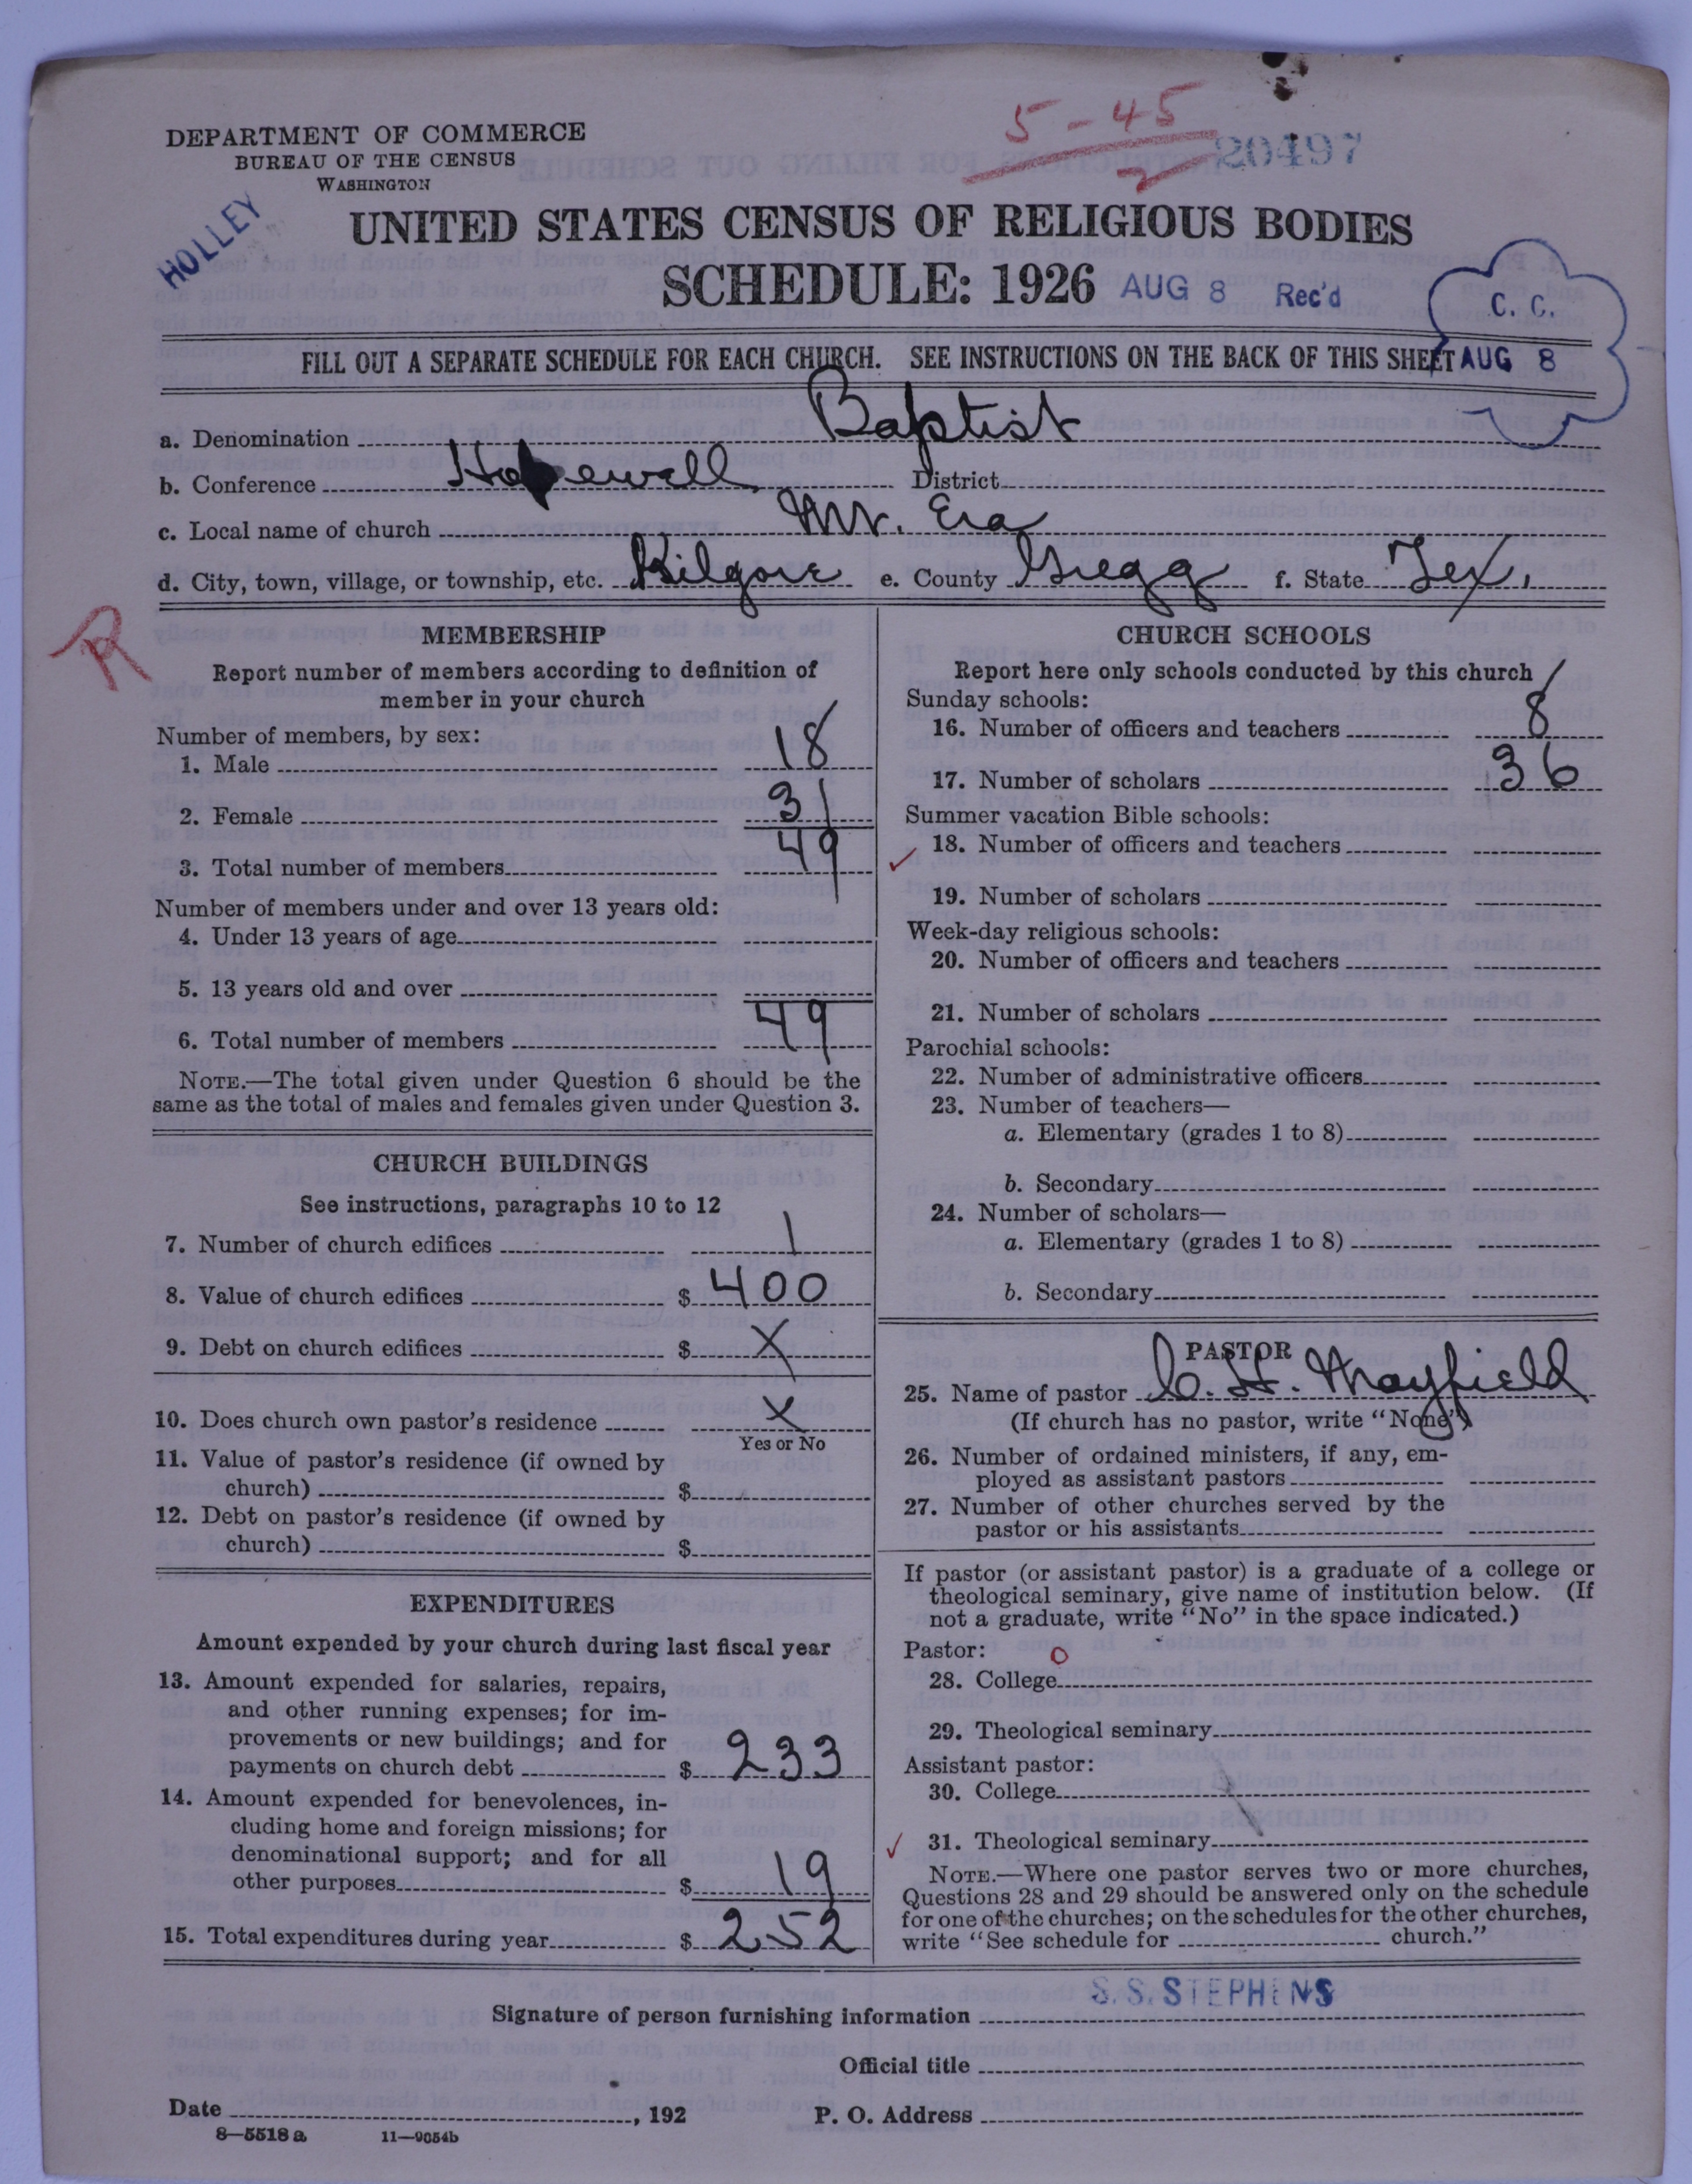 5-45
2
20497
DEPARTMENT OF COMMERCE
BUREAU OF THE CENSUS
WASHINGTON
HOLLEY
UNITED STATES CENSUS OF RELIGIOUS BODIES
SCHEDULE: 1926 AUG 8 Rec'd
C. C.
AUG 8
FILL OUT A SEPARATE SCHEDULE FOR EACH CHURCH. SEE INSTRUCTIONS ON THE BACK OF THIS SHEET
a. Denomination Baptist
b. Conference Hopewell District
c. Local name of church Mr. Era
d. City, town, village, or township, etc. Kilgore e. County Gregg f. State Tex.
R
MEMBERSHIP
Report number of members according to definition of
member in your church
Number of members, by sex:
1. Male 18
2. Female 31
3. Total number of members 49
Number of members under and over 13 years old:
4. Under 13 years of age
5. 13 years old and over
6. Total number of members 49
NOTE.—The total given under Question 6 should be the
same as the total of males and females given under Question 3.
CHURCH BUILDINGS
See instructions, paragraphs 10 to 12
7. Number of church edifices 1
8. Value of church edifices $ 400
9. Debt on church edifices $ X
10. Does church own pastor's residence X
Yes or No
11. Value of pastor's residence (if owned by
church) $
12. Debt on pastor's residence (if owned by
church) $
EXPENDITURES
Amount expended by your church during last fiscal year
13. Amount expended for salaries, repairs,
and other running expenses; for im-
provements or new buildings; and for
payments on church debt $ 233
14. Amount expended for benevolences, in-
cluding home and foreign missions; for
denominational support; and for all
other purposes $ 19
15. Total expenditures during year $ 252
CHURCH SCHOOLS
Report here only schools conducted by this church
Sunday schools:
16. Number of officers and teachers 8
17. Number of scholars 36
Summer vacation Bible schools:
18. Number of officers and teachers
19. Number of scholars
Week-day religious schools:
20. Number of officers and teachers
21. Number of scholars
Parochial schools:
22. Number of administrative officers
23. Number of teachers—
a. Elementary (grades 1 to 8)
b. Secondary
24. Number of scholars—
a. Elementary (grades 1 to 8)
b. Secondary
PASTOR
25. Name of pastor C. H. Mayfield
(If church has no pastor, write "None")
26. Number of ordained ministers, if any, em-
ployed as assistant pastors
27. Number of other churches served by the
pastor or his assistants
If pastor (or assistant pastor) is a graduate of a college or
theological seminary, give name of institution below. (If
not a graduate, write "No" in the space indicated.)
Pastor: 0
28. College
29. Theological seminary
Assistant pastor:
30. College
31. Theological seminary
NOTE.—Where one pastor serves two or more churches,
Questions 28 and 29 should be answered only on the schedule
for one of the churches; on the schedules for the other churches,
write "See schedule for church."
S. S. STEPHENS
Signature of person furnishing information
Official title
Date , 192 P. O. Address
8—5518 a 11—9054b